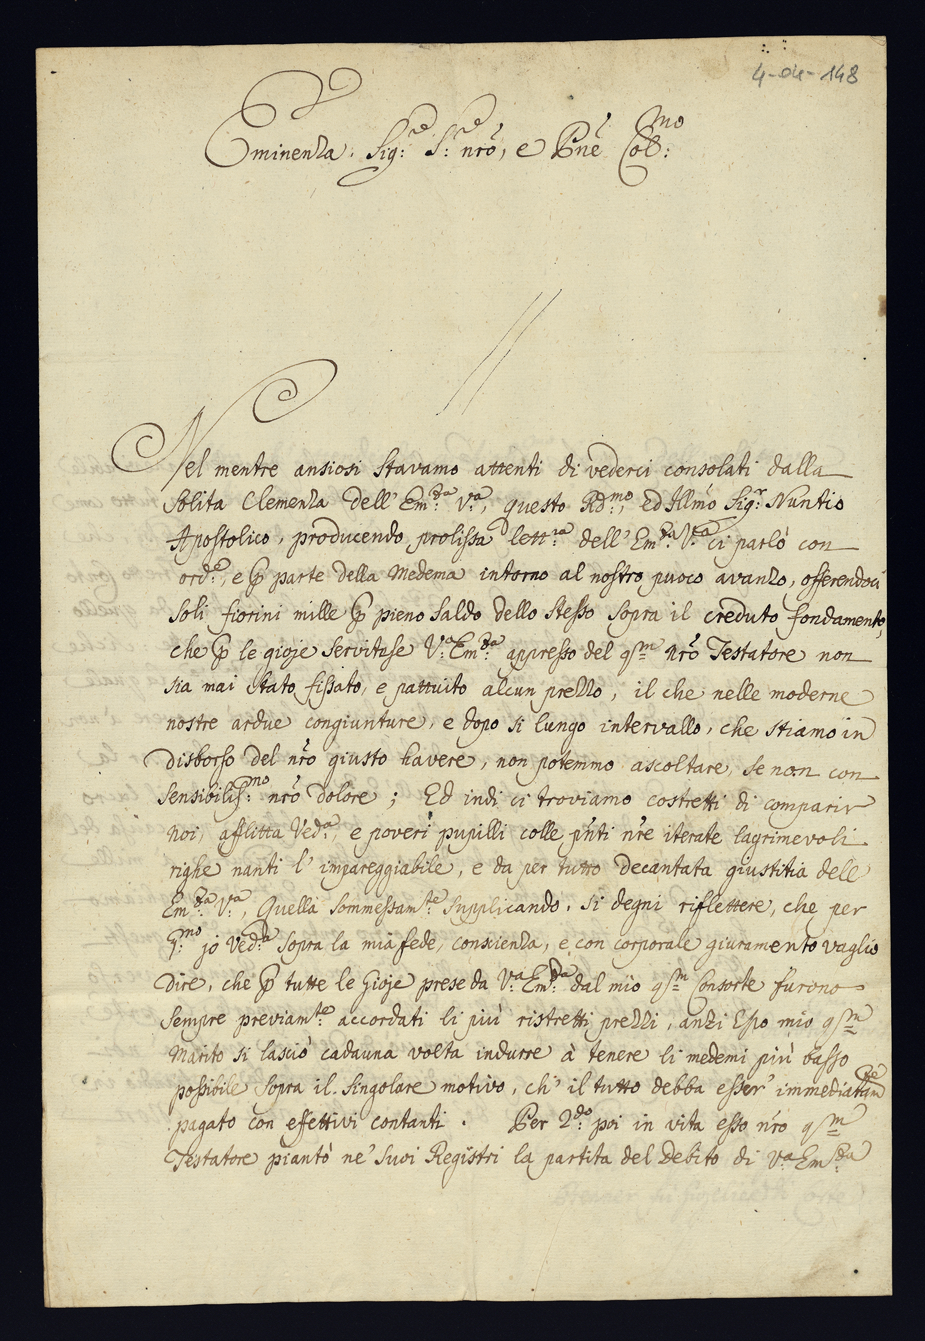 4-04-148
Eminenza. Sig:re S:re nrõ, e Pñe Col:mo
Nel mentre ansiosi stavamo attenti di vederci consolati dalla
solita Clemenza dell' Em:za V:a, questo Rd:mo, ed Illmõ Sig:r Nuntio
Apostolico, producendo prolissa lett:ra dell' Em:za V:ra ci parlò con
ord:e, e ꝑ parte della Medema intorno al nostro puoco avanzo, offerendoci
soli fiorini mille ꝑ pieno saldo dello stesso sopra il creduto fondamento,
che ꝑ le gioje servitese V:a Em:za appresso del qm nrõ Testatore non
sia mai stato fissato, e pattuito alcun prezzo, il che nelle moderne
nostre ardue congiunture, e dopo si lungo intervallo, che stiamo in
disborso del nrõ giusto havere, non potemmo ascoltare, se non con
sensibiliss:mo nrõ dolore; Ed indi ci troviamo costretti di comparir
noi, afflitta Ved:a, e poveri pupilli colle pñti nr̃e iterate lagrimevoli
righe nanti l' impareggiabile, e da per tutto decantata giustitia dell'
Em:za V:a, Quella sommessam:te supplicando, si degni riflettere, che per
p:mo jo Ved:a sopra la mia fede, conscienza, e con corporale giuramento vaglio
dire, che ꝑ tutte le Gioje prese da V:a Em:za dal mio qm Consorte furono
sempre previam:te accordati li più ristretti prezzi, anzi Esso mio qm
Marito si lasciò cadauna volta indurre à tenere li medemi più basso
possibile sopra il singolare motivo, ch' il tutto debba esser' immediatam:te
pagato con effettivi contanti. Per 2:do poi in vita esso nr̃o qm
Testatore piantò ne' suoi Registri la partita del Debito di V:a Em:za